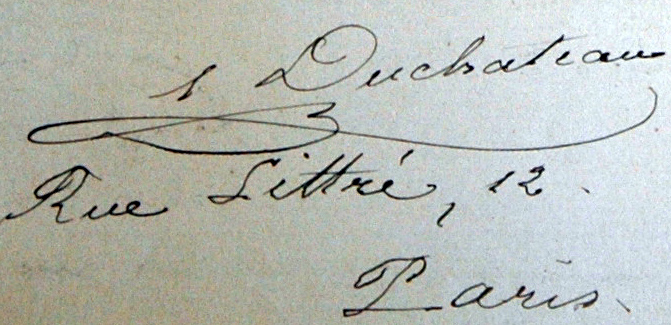 s Duchateau
Rue Littré, 12.
Paris.